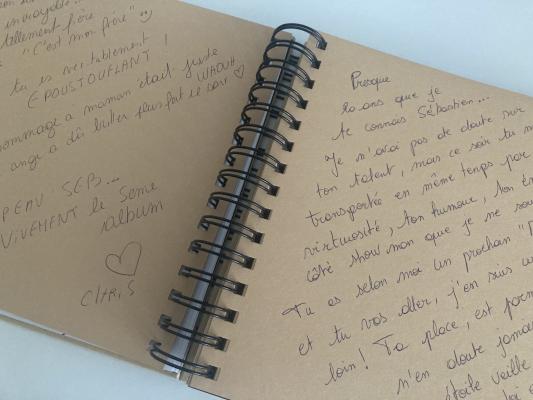 incroyable...
tellement fière
"C'est mon frère"
tu es véritablement
EPOUSTOUFLANT !
hommage à maman était juste
WAOUH
ange a dû briller plus fort ce soir ♡
SEB...
VIVEMENT le 5ème
album
CHRIS
Presque
10 ans que je
te connais Sébastien...
Je n'avais pas de doute sur
ton talent, mais ce soir tu m'
transportée en même temps par
virtuosité, ton humour, ton
côté show man que je ne
Tu es selon moi un prochain
et tu vas aller, j'en suis
loin ! Ta place, est
n'en doute jamais
étoile veille